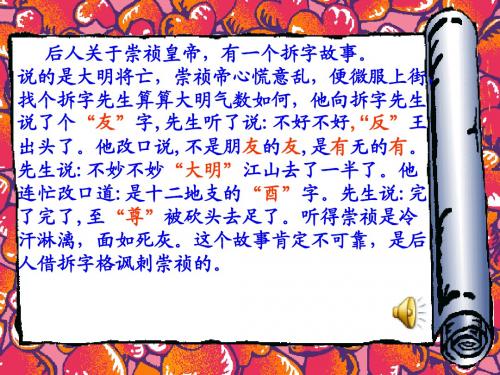 后人关于崇祯皇帝，有一个拆字故事。
说的是大明将亡，崇祯帝心慌意乱，便微服上街
找个拆字先生算算大明气数如何，他向拆字先生
说了个“友”字,先生听了说:不好不好,“反”王
出头了。他改口说,不是朋友的友,是有无的有。
先生说:不妙不妙“大明”江山去了一半了。他
连忙改口道:是十二地支的“酉”字。先生说:完
了完了,至“尊”被砍头去足了。听得崇祯是冷
汗淋漓，面如死灰。这个故事肯定不可靠，是后
人借拆字格讽刺崇祯的。